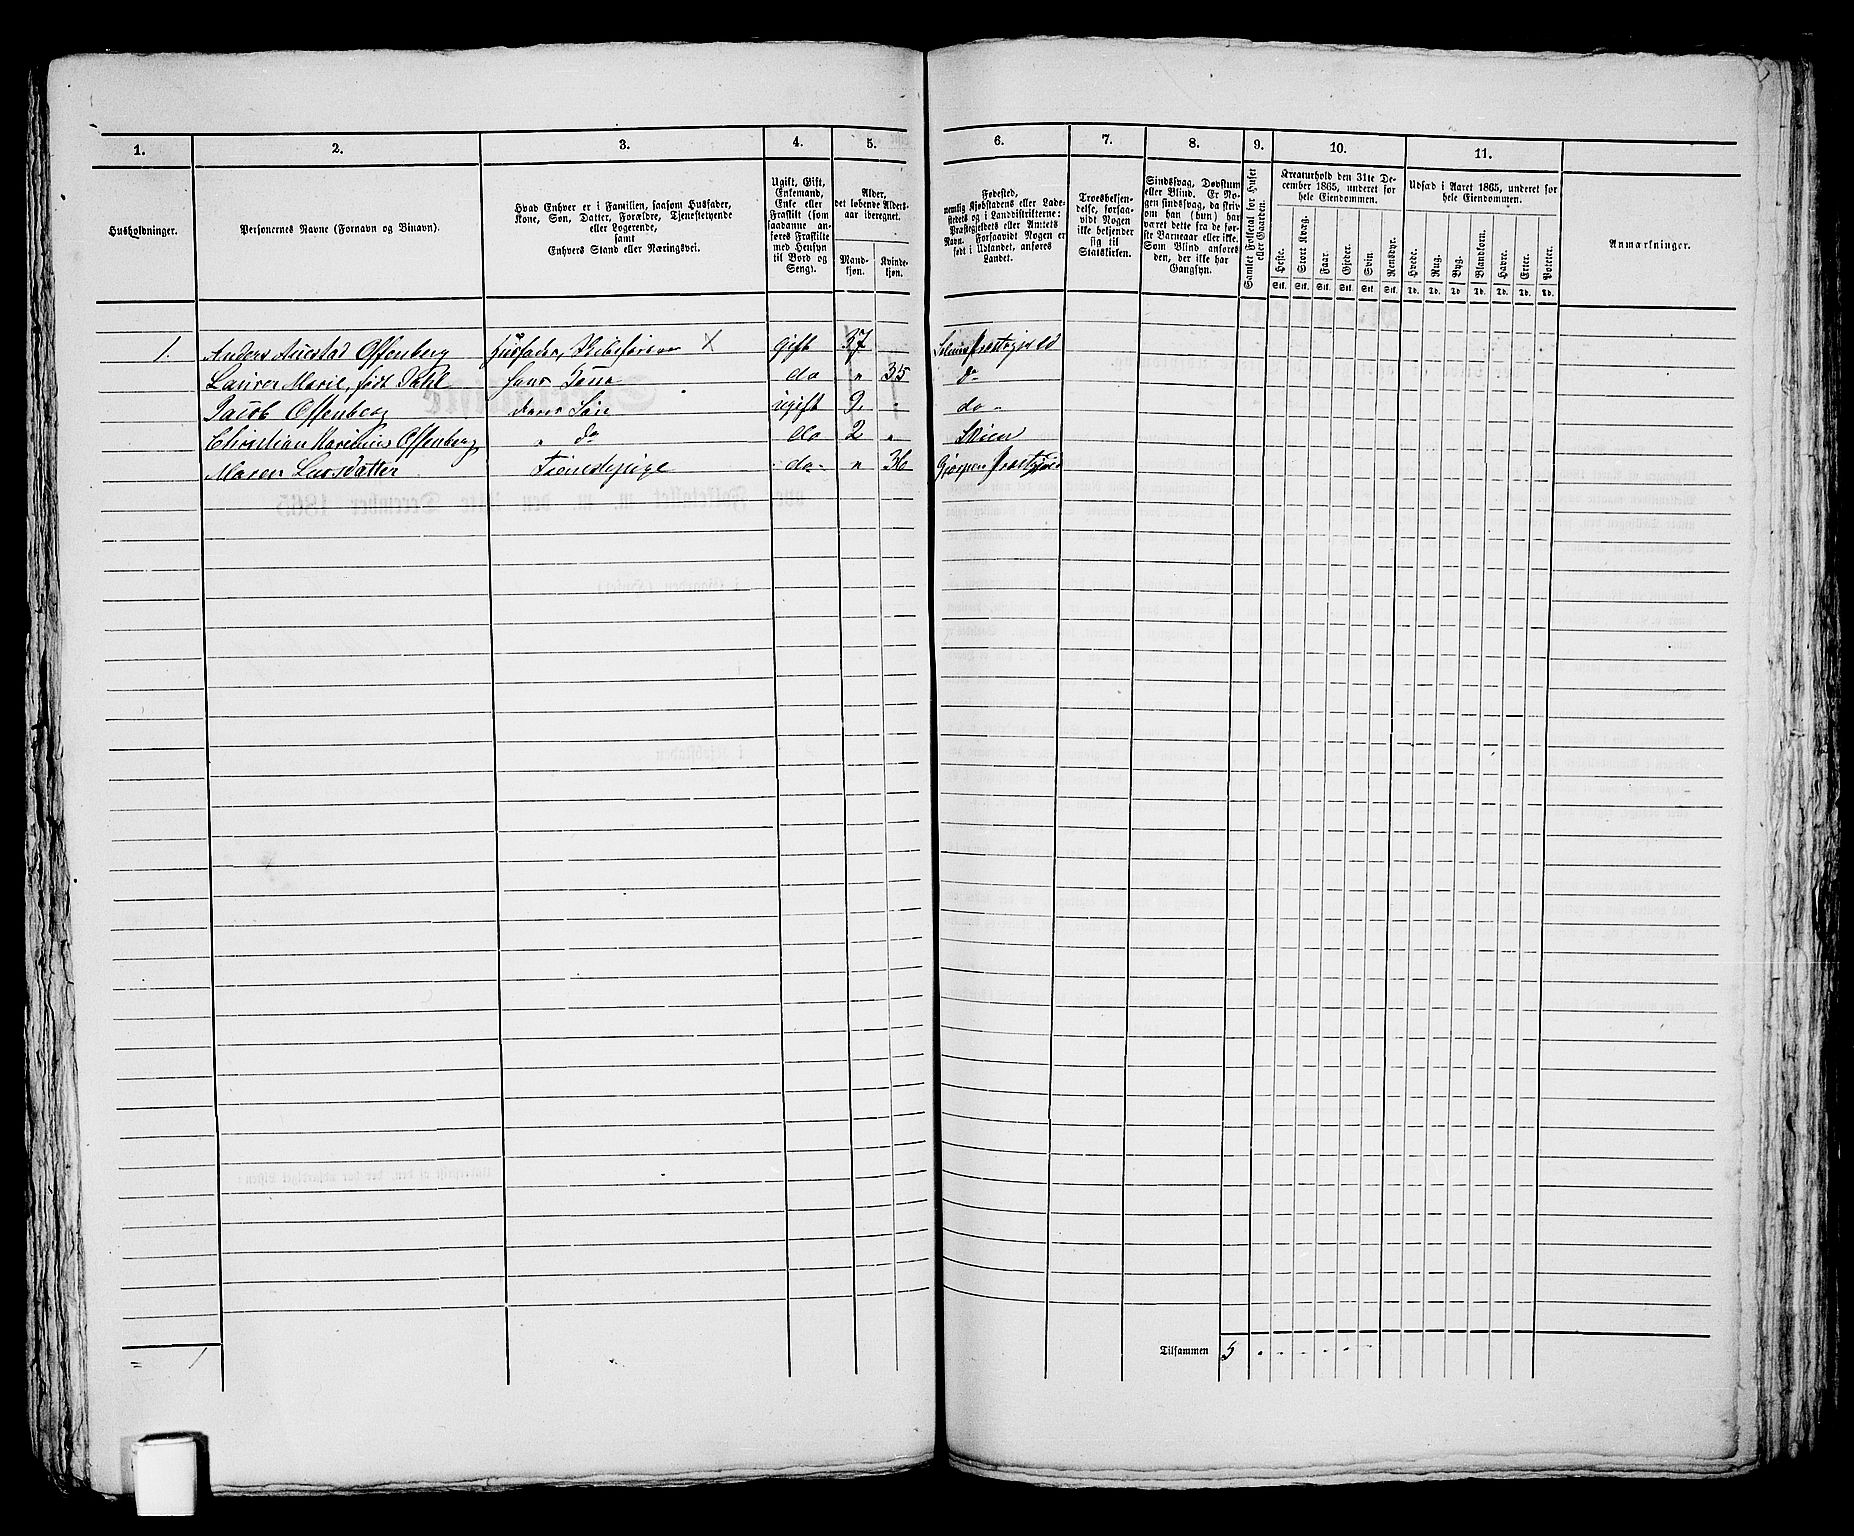 1. 2. 3. 4. 5. 6. 7. 8. 9. 10. 11.
Husholdninger.
Personernes Navne (Fornavn og Binavn).
Hvad Enhver er i Familien, saasom Husfader,
Kone, Søn, Datter, Forældre, Tjenestetyende
eller Logerende,
samt
Enhvers Stand eller Næringsvei.
Ugift, Gift,
Enkemand,
Enke eller
Fraskilt (som
saadanne anføres
Fraskilte
med Hensyn
til Bord og
Seng).
Alder,
det løbende Alders-
aar iberegnet.
Mand-
kjøn.
Kvinde-
kjøn.
Fødested,
nemlig Kjøbstadens eller Lade-
stedets og i Landdistrikterne:
Præstegjeldets eller Annexets
Navn. Forsaavidt Nogen er
født i Udlandet, anføres
Landet.
Troesbekjen-
delse, forsaa-
vidt Nogen
ikke bekjender
sig til
Statskirken.
Sindssvag, Døvstum
eller Blind. Er No-
gen sindssvag, da skriv
om han (hun) har
været dette fra de før-
ste Barneaar eller ikke.
Som Blind anføres
den, der ikke har
Gangsyn.
Samlet Folketal for Huset
eller Gaarden.
Kreaturhold den 31te De-
cember 1865, underet for
hele Eiendommen.
Heste. Stort Kvæg. Faar. Gjeder. Svin. Rensdyr.
Stk. Stk. Stk. Stk. Stk. Stk.
Udsæd i Aaret 1865, underet for
hele Eiendommen.
Hvede. Rug. Byg. Blandkorn. Havre. Erter. Poteter.
Td. Td. Td. Td. Td. Td. Td.
Anmærkninger.
1. Anders Auestad Offenberg Husfader, Skibsfører X gift 37 Præstegjeld
Marie, født Dahl hans Kone do " 35 do
Jacob Offenberg deres Søn ugift 9 " do "
Christian Marinius Offenberg " do do 2 " Skien
Maren Larsdatter Tjenestepige do " 36 Gjerpen Præstgjeld
= 1
Tilsammen 5 " " " " " "